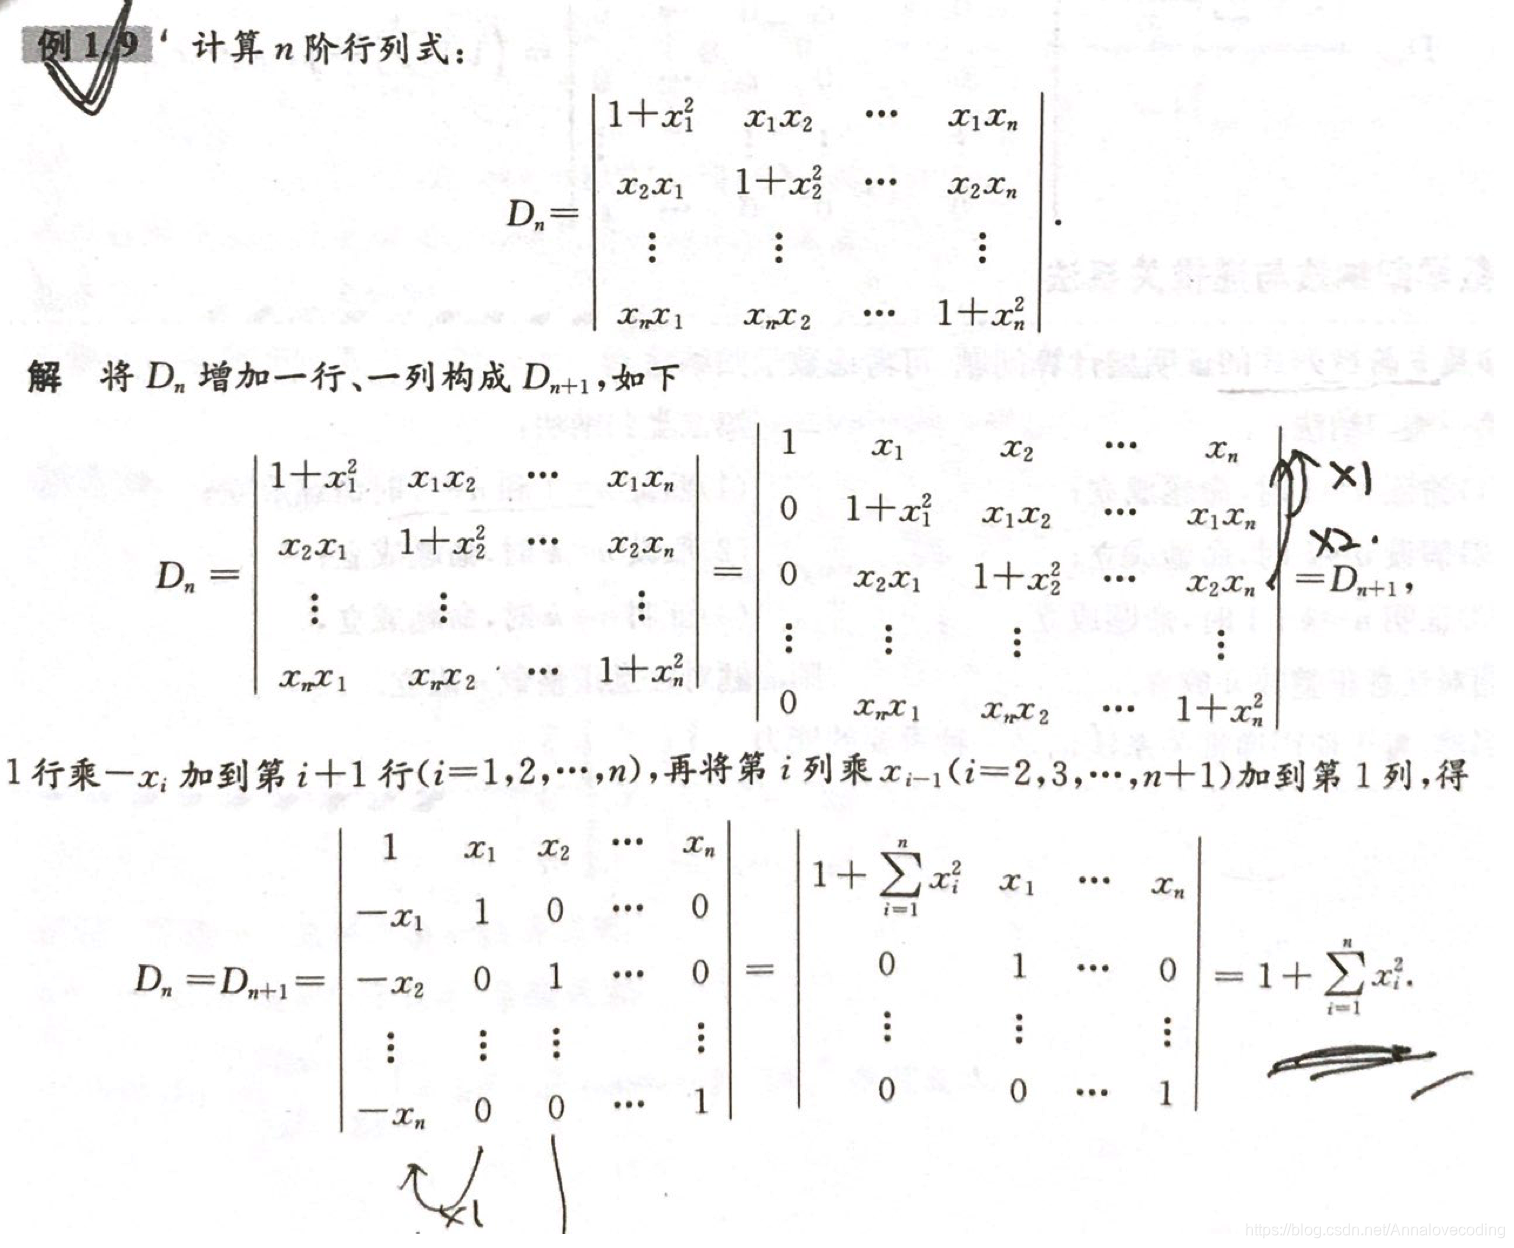 例 1.9 计算 n 阶行列式:
D_n = | 1+x_1^2 x_1x_2 ⋯ x_1x_n |
| x_2x_1 1+x_2^2 ⋯ x_2x_n |
| ⋮ ⋮ ⋮ |
| x_nx_1 x_nx_2 ⋯ 1+x_n^2 | .
解 将 D_n 增加一行、一列构成 D_{n+1},如下
D_n = | 1+x_1^2 x_1x_2 ⋯ x_1x_n | = | 1 x_1 x_2 ⋯ x_n |
| x_2x_1 1+x_2^2 ⋯ x_2x_n | | 0 1+x_1^2 x_1x_2 ⋯ x_1x_n |
| ⋮ ⋮ ⋮ | | 0 x_2x_1 1+x_2^2 ⋯ x_2x_n | = D_{n+1},
| x_nx_1 x_nx_2 ⋯ 1+x_n^2 | | ⋮ ⋮ ⋮ ⋮ |
| 0 x_nx_1 x_nx_2 ⋯ 1+x_n^2 |
x1
x2.
1 行乘−x_i 加到第 i+1 行(i=1,2,⋯,n),再将第 i 列乘 x_{i−1}(i=2,3,⋯,n+1)加到第 1 列,得
D_n = D_{n+1} = | 1 x_1 x_2 ⋯ x_n | = | 1+∑_{i=1}^{n} x_i^2 x_1 ⋯ x_n | = 1+∑_{i=1}^{n} x_i^2.
| −x_1 1 0 ⋯ 0 | | 0 1 ⋯ 0 |
| −x_2 0 1 ⋯ 0 | | ⋮ ⋮ ⋮ |
| ⋮ ⋮ ⋮ ⋮ | | 0 0 ⋯ 1 |
| −x_n 0 0 ⋯ 1 |
x1
https://blog.csdn.net/Annalovecoding